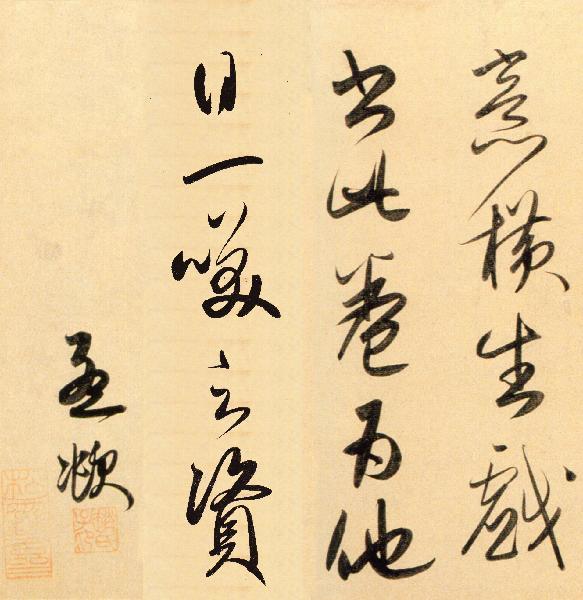 意橫生戲
書此卷為他
日一咲之資
孟頫